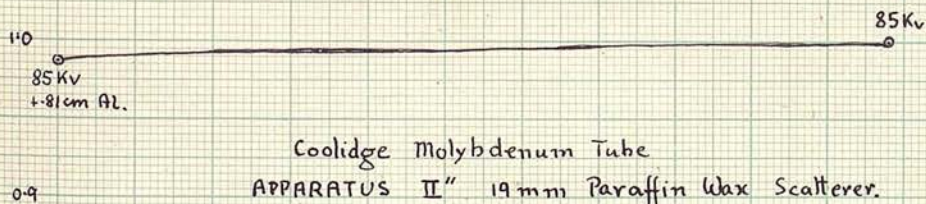 85 Kv
1.0
85 Kv
+.81cm Al.
Coolidge Molybdenum Tube
0.9 APPARATUS II" 19mm Paraffin Wax Scatterer.